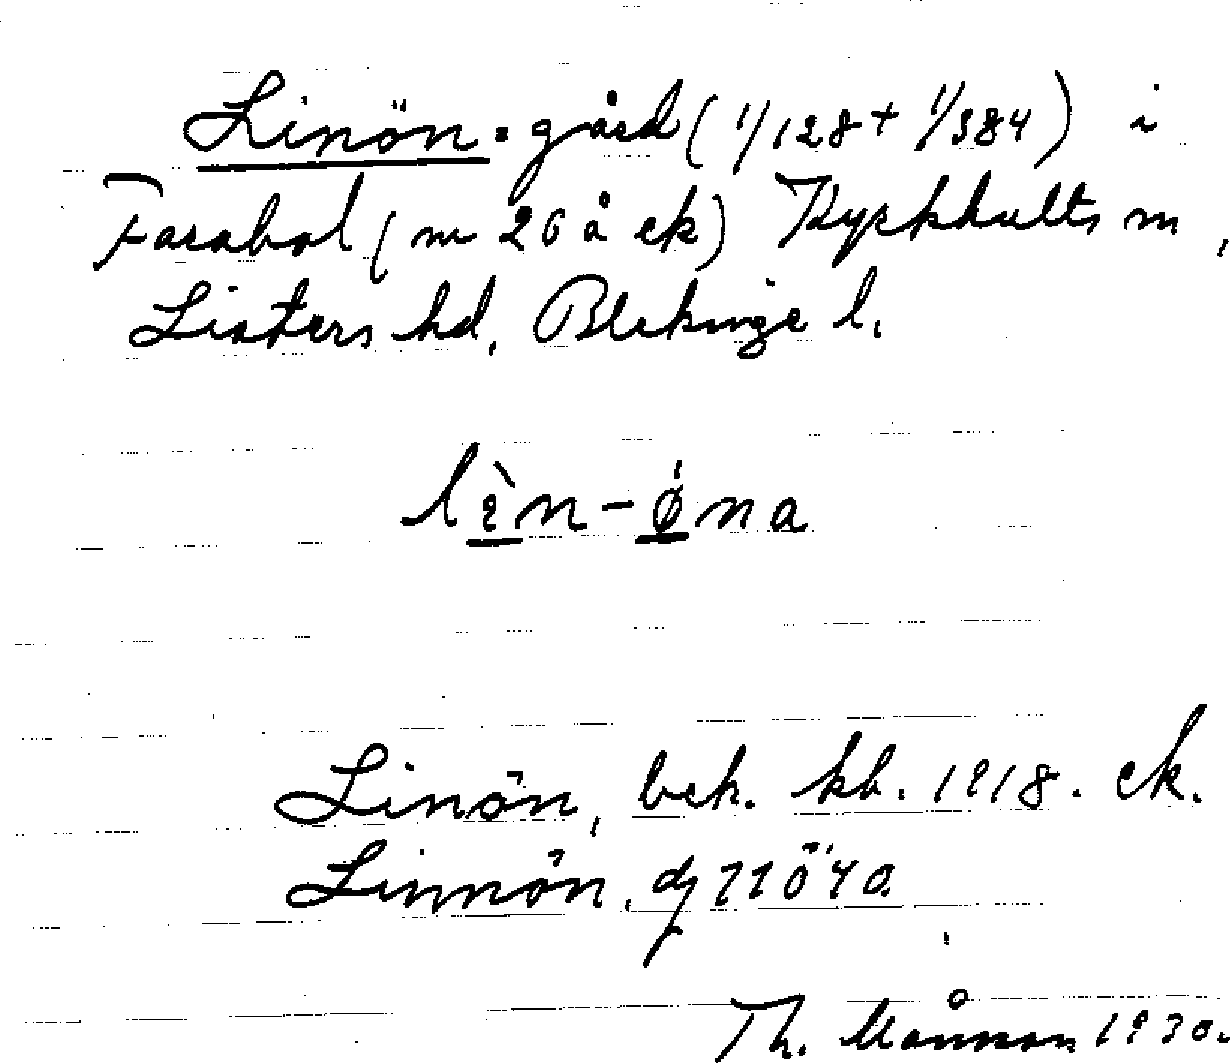 Linön = gård (1/128 + 1/384) i
Farabol (nr 26 å ek) Kyrkhults sn,
Listers hd, Blekinge l.
lìn-ø̀na
Linön, bek. kb. 1918. ek.
Linnön,
Th. Månsson 1930.